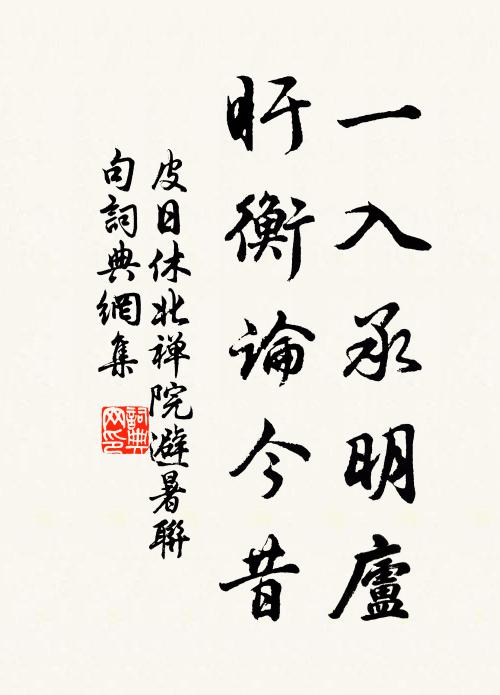 一入承明廬
盱衡論今昔
皮日休北禅院避暑聯
句詞典網集
詞典
网印